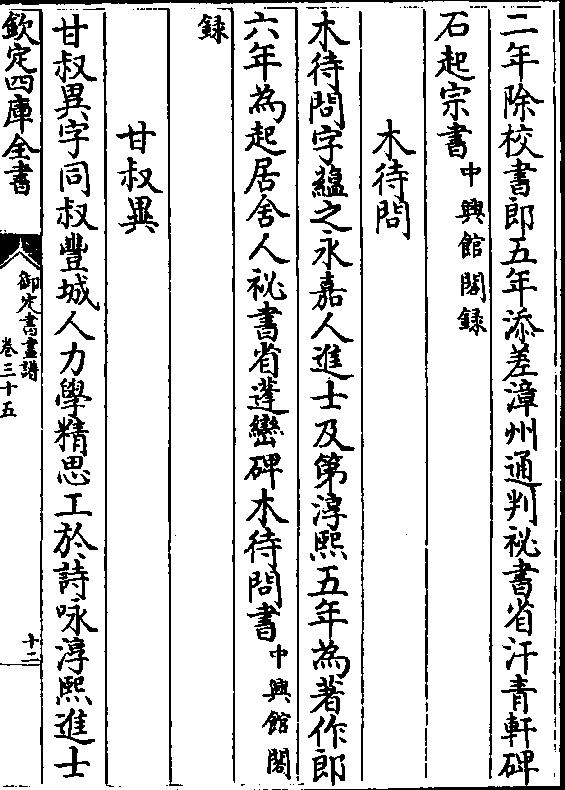 二年除校書郎五年添差漳州通判祕書省汗青軒碑
石起宗書中興館閣録
木待問
木待問字蘊之永嘉人進士及第淳熙五年為著作郎
六年為起居舍人祕書省蓬巒碑木待問書中興館閣
録
甘叔異
甘叔異字同叔豐城人力學精思工於詩咏淳熙進士
欽定四庫全書
御定書畫譜
卷三十五
十二